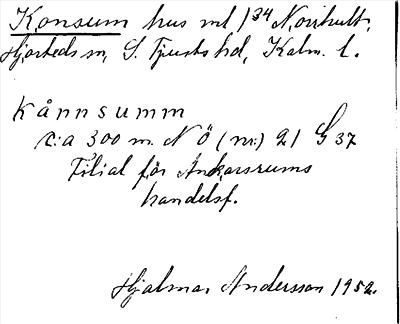 Konsum hus vid 1³⁴ Norrhult,
Hjorteds sn, S. Tjusts hd, Kalm. l.
kånnsumm
c:a 300 m. N Ö (nr:) 21 G 37
Filial för Ankarsrums
handelsf.
Hjalmar Andersson 1952.